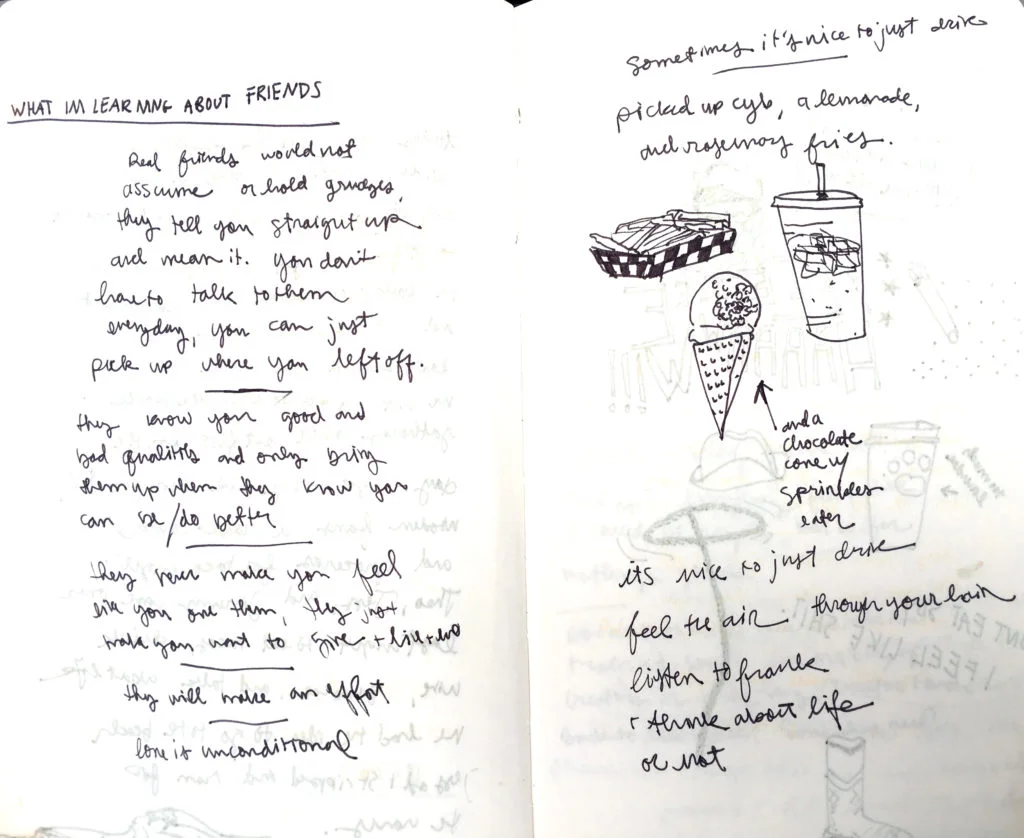 WHAT IM LEARNING ABOUT FRIENDS
Real friends would not
assume or hold grudges,
they tell you straight up
and mean it. you don't
have to talk to them
everyday, you can just
pick up where you left off.
they know your good and
bad qualities and only bring
them up when they know you
can be/do better
they never make you feel
like you owe them, they just
make you want to give + live +
they will make an effort
love is unconditional
Sometimes it's nice to just drive
picked up cyb, a lemonade,
and rosemary fries.
and a
chocolate
cone w/
sprinkles
later
its nice to just drive
feel the air through your hair
listen to frank
+ think about life
or not